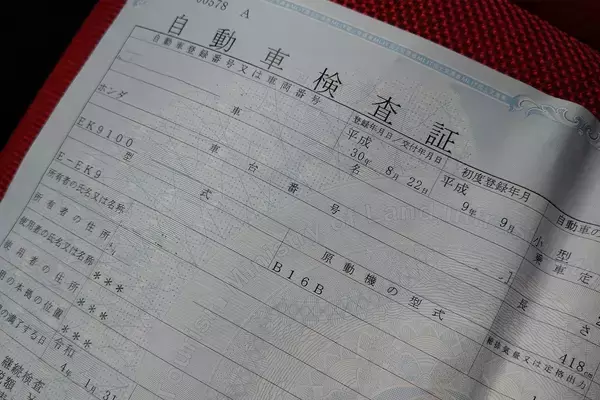 00578 A
自動車検査証
自動車登録番号又は車両番号
登録年月日/交付年月日
初度登録年月
自動車の
平成 30年 8月 22日
平成 9年 9月
小型
車名
ホンダ
乗車定
車台番号
EK9100
長さ
型式
E-EK9
原動機の型式
418cm
B16B
総排気量又は定格出力
所有者の氏名又は名称
所有者の住所
使用者の氏名又は名称
***
使用者の住所
***
用の本拠の位置
***
の満了する日
令和 4年 1月 31
継続検査
税額